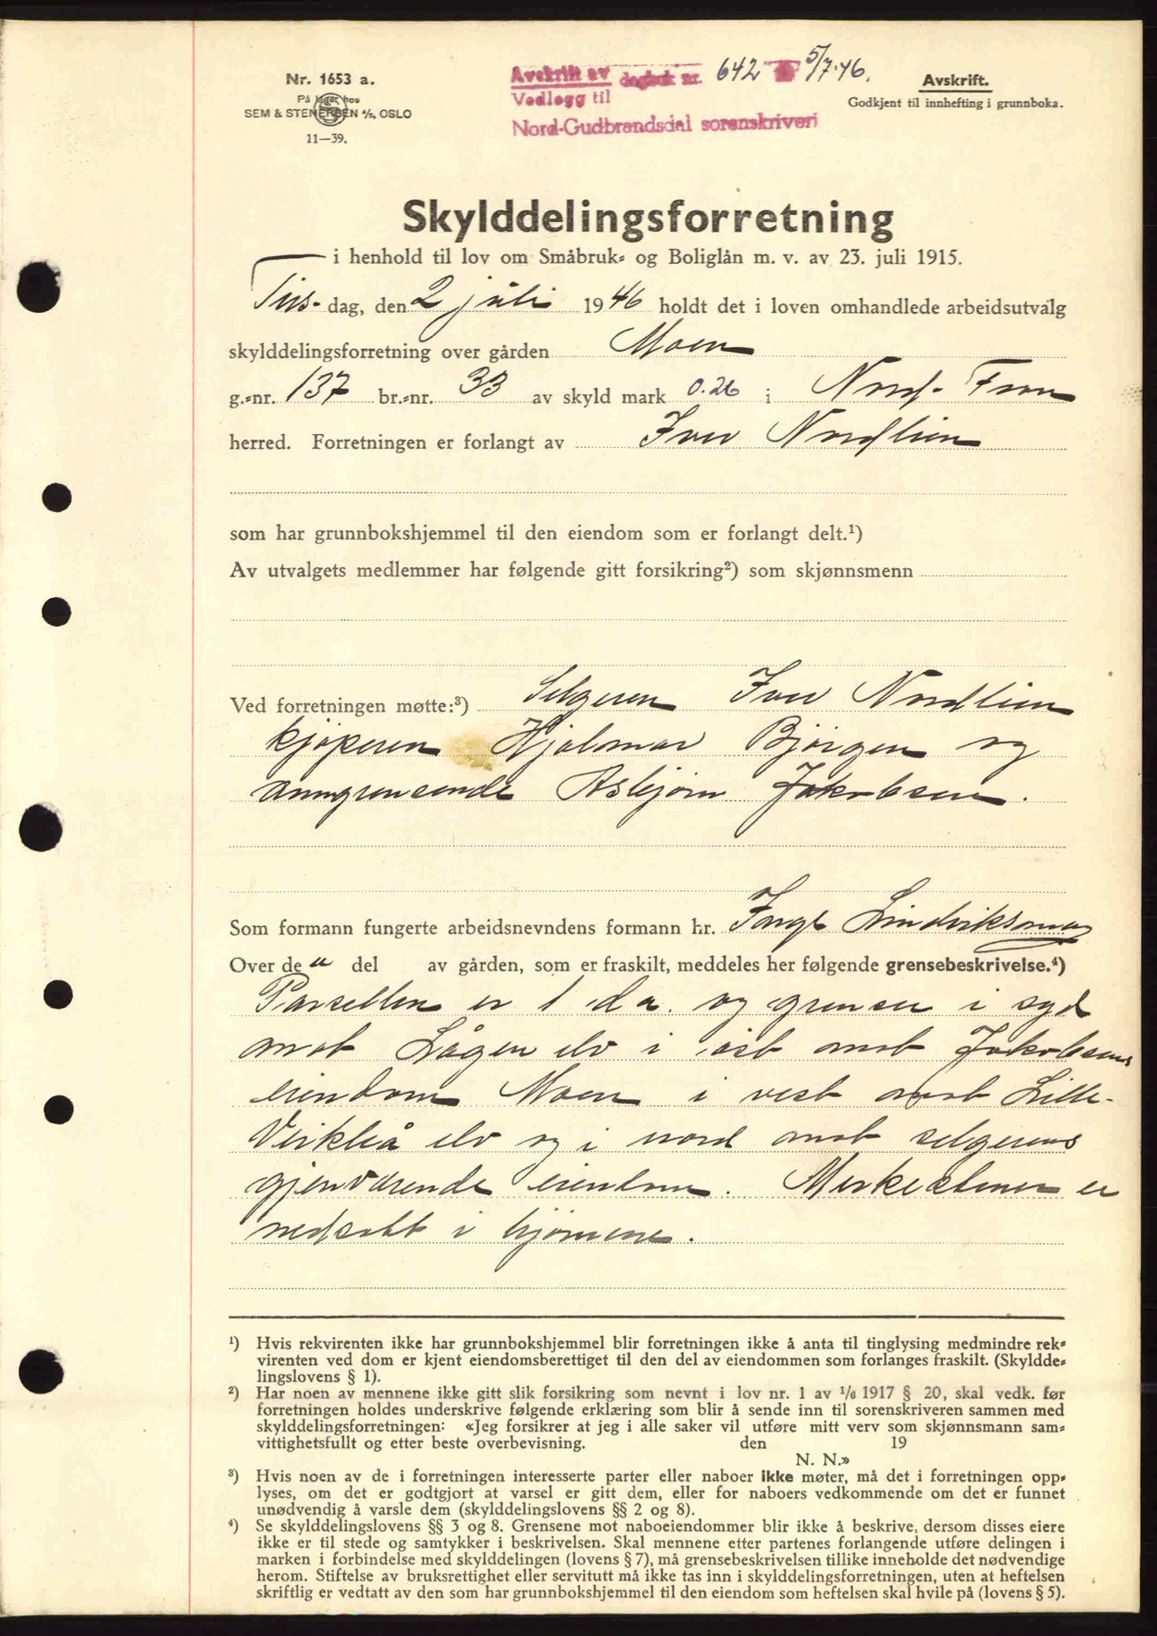 Nr. 1653 a.
På lager hos
SEM & STENERSEN A/S, OSLO
11—39.
Avskrift av dagbok nr. 642 5/7-46.
Vedlegg til
Nord-Gudbrandsdal sorenskriveri
Avskrift.
Godkjent til innhefting i grunnboka.
Skylddelingsforretning
i henhold til lov om Småbruk- og Boliglån m. v. av 23. juli 1915.
Tirs- dag, den 2 juli 1946 holdt det i loven omhandlede arbeidsutvalg
skylddelingsforretning over gården Moen
g.-nr. 137 br.-nr. 33 av skyld mark 0.26 i Nord-Fron
herred. Forretningen er forlangt av Iver Nordlien
som har grunnbokshjemmel til den eiendom som er forlangt delt.¹)
Av utvalgets medlemmer har følgende gitt forsikring²) som skjønnsmenn
Ved forretningen møtte:³) Selgeren Iver Nordlien
kjøperen Hjalmar Bjørgen og
anngrensende Asbjørn Jakobsen.
Som formann fungerte arbeidsnevndens formann hr. Inge
Over de n del av gården, som er fraskilt, meddeles her følgende grensebeskrivelse.⁴)
Parsellen er 1 da. og grenser i syd
mot Lågen elv i øst mot Jakobsens
eiendom Moen i vest mot Lille-
Veikleå elv og i nord mot selgerens
gjenværende eiendom. Merkestener er
nedsatt i hjørnene.
¹) Hvis rekvirenten ikke har grunnbokshjemmel blir forretningen ikke å anta til tinglysing medmindre rek-
virenten ved dom er kjent eiendomsberettiget til den del av eiendommen som forlanges fraskilt. (Skyldde-
lingslovens § 1).
²) Har noen av mennene ikke gitt slik forsikring som nevnt i lov nr. 1 av 1/6 1917 § 20, skal vedk. før
forretningen holdes underskrive følgende erklæring som blir å sende inn til sorenskriveren sammen med
skylddelingsforretningen: «Jeg forsikrer at jeg i alle saker vil utføre mitt verv som skjønnsmann sam-
vittighetsfullt og etter beste overbevisning. den 19
N. N.»
³) Hvis noen av de i forretningen interesserte parter eller naboer ikke møter, må det i forretningen opp-
lyses, om det er godtgjort at varsel er gitt dem, eller for naboers vedkommende om det er funnet
unødvendig å varsle dem (skylddelingslovens §§ 2 og 8).
⁴) Se skylddelingslovens §§ 3 og 8. Grensene mot naboeiendommer blir ikke å beskrive, dersom disses eiere
ikke er til stede og samtykker i beskrivelsen. Skal mennene etter partenes forlangende utføre delingen i
marken i forbindelse med skylddelingen (lovens § 7), må grensebeskrivelsen tillike inneholde det nødvendige
herom. Stiftelse av bruksrettighet eller servitutt må ikke tas inn i skylddelingsforretningen, uten at heftelsen
skriftlig er vedtatt av den som har grunnbokshjemmel til den eiendom som heftelsen skal hvile på (lovens § 5).